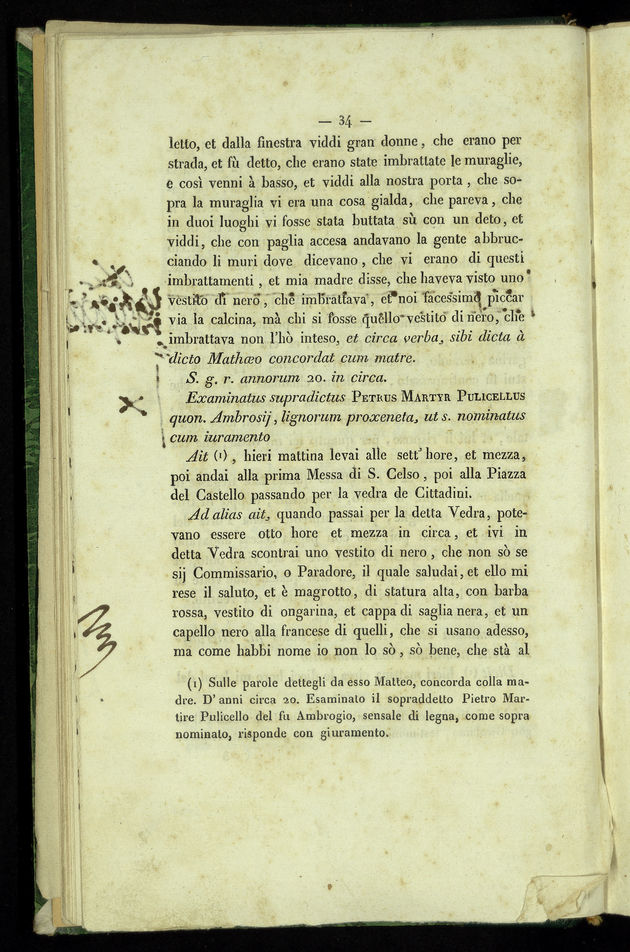 — 34 —
letto, et dalla finestra viddi gran donne, che erano per
strada, et fù detto, che erano state imbrattate le muraglie,
e così venni à basso, et viddi alla nostra porta, che so-
pra la muraglia vi era una cosa gialda, che pareva, che
in duoi luoghi vi fosse stata buttata sù con un deto, et
viddi, che con paglia accesa andavano la gente abbruc-
ciando li muri dove dicevano, che vi erano di questi
imbrattamenti, et mia madre disse, che haveva visto uno
vestito di nero, che imbrattava, et noi facessimo piccar
via la calcina, mà chi si fosse quello vestito di nero, che
imbrattava non l'hò inteso, et circa verba, sibi dicta à
dicto Mathæo concordat cum matre.
S. g. r. annorum 20. in circa.
Examinatus supradictus PETRUS MARTYR PULICELLUS
quon. Ambrosij, lignorum proxeneta, ut s. nominatus
cum iuramento
Ait (1), hieri mattina levai alle sett' hore, et mezza,
poi andai alla prima Messa di S. Celso, poi alla Piazza
del Castello passando per la vedra de Cittadini.
Ad alias ait, quando passai per la detta Vedra, pote-
vano essere otto hore et mezza in circa, et ivi in
detta Vedra scontrai uno vestito di nero, che non sò se
sij Commissario, o Paradore, il quale saludai, et ello mi
rese il saluto, et è magrotto, di statura alta, con barba
rossa, vestito di ongarina, et cappa di saglia nera, et un
capello nero alla francese di quelli, che si usano adesso,
ma come habbi nome io non lo sò, sò bene, che stà al
(1) Sulle parole dettegli da esso Matteo, concorda colla ma-
dre. D'anni circa 20. Esaminato il sopraddetto Pietro Mar-
tire Pulicello del fu Ambrogio, sensale di legna, come sopra
nominato, risponde con giuramento.